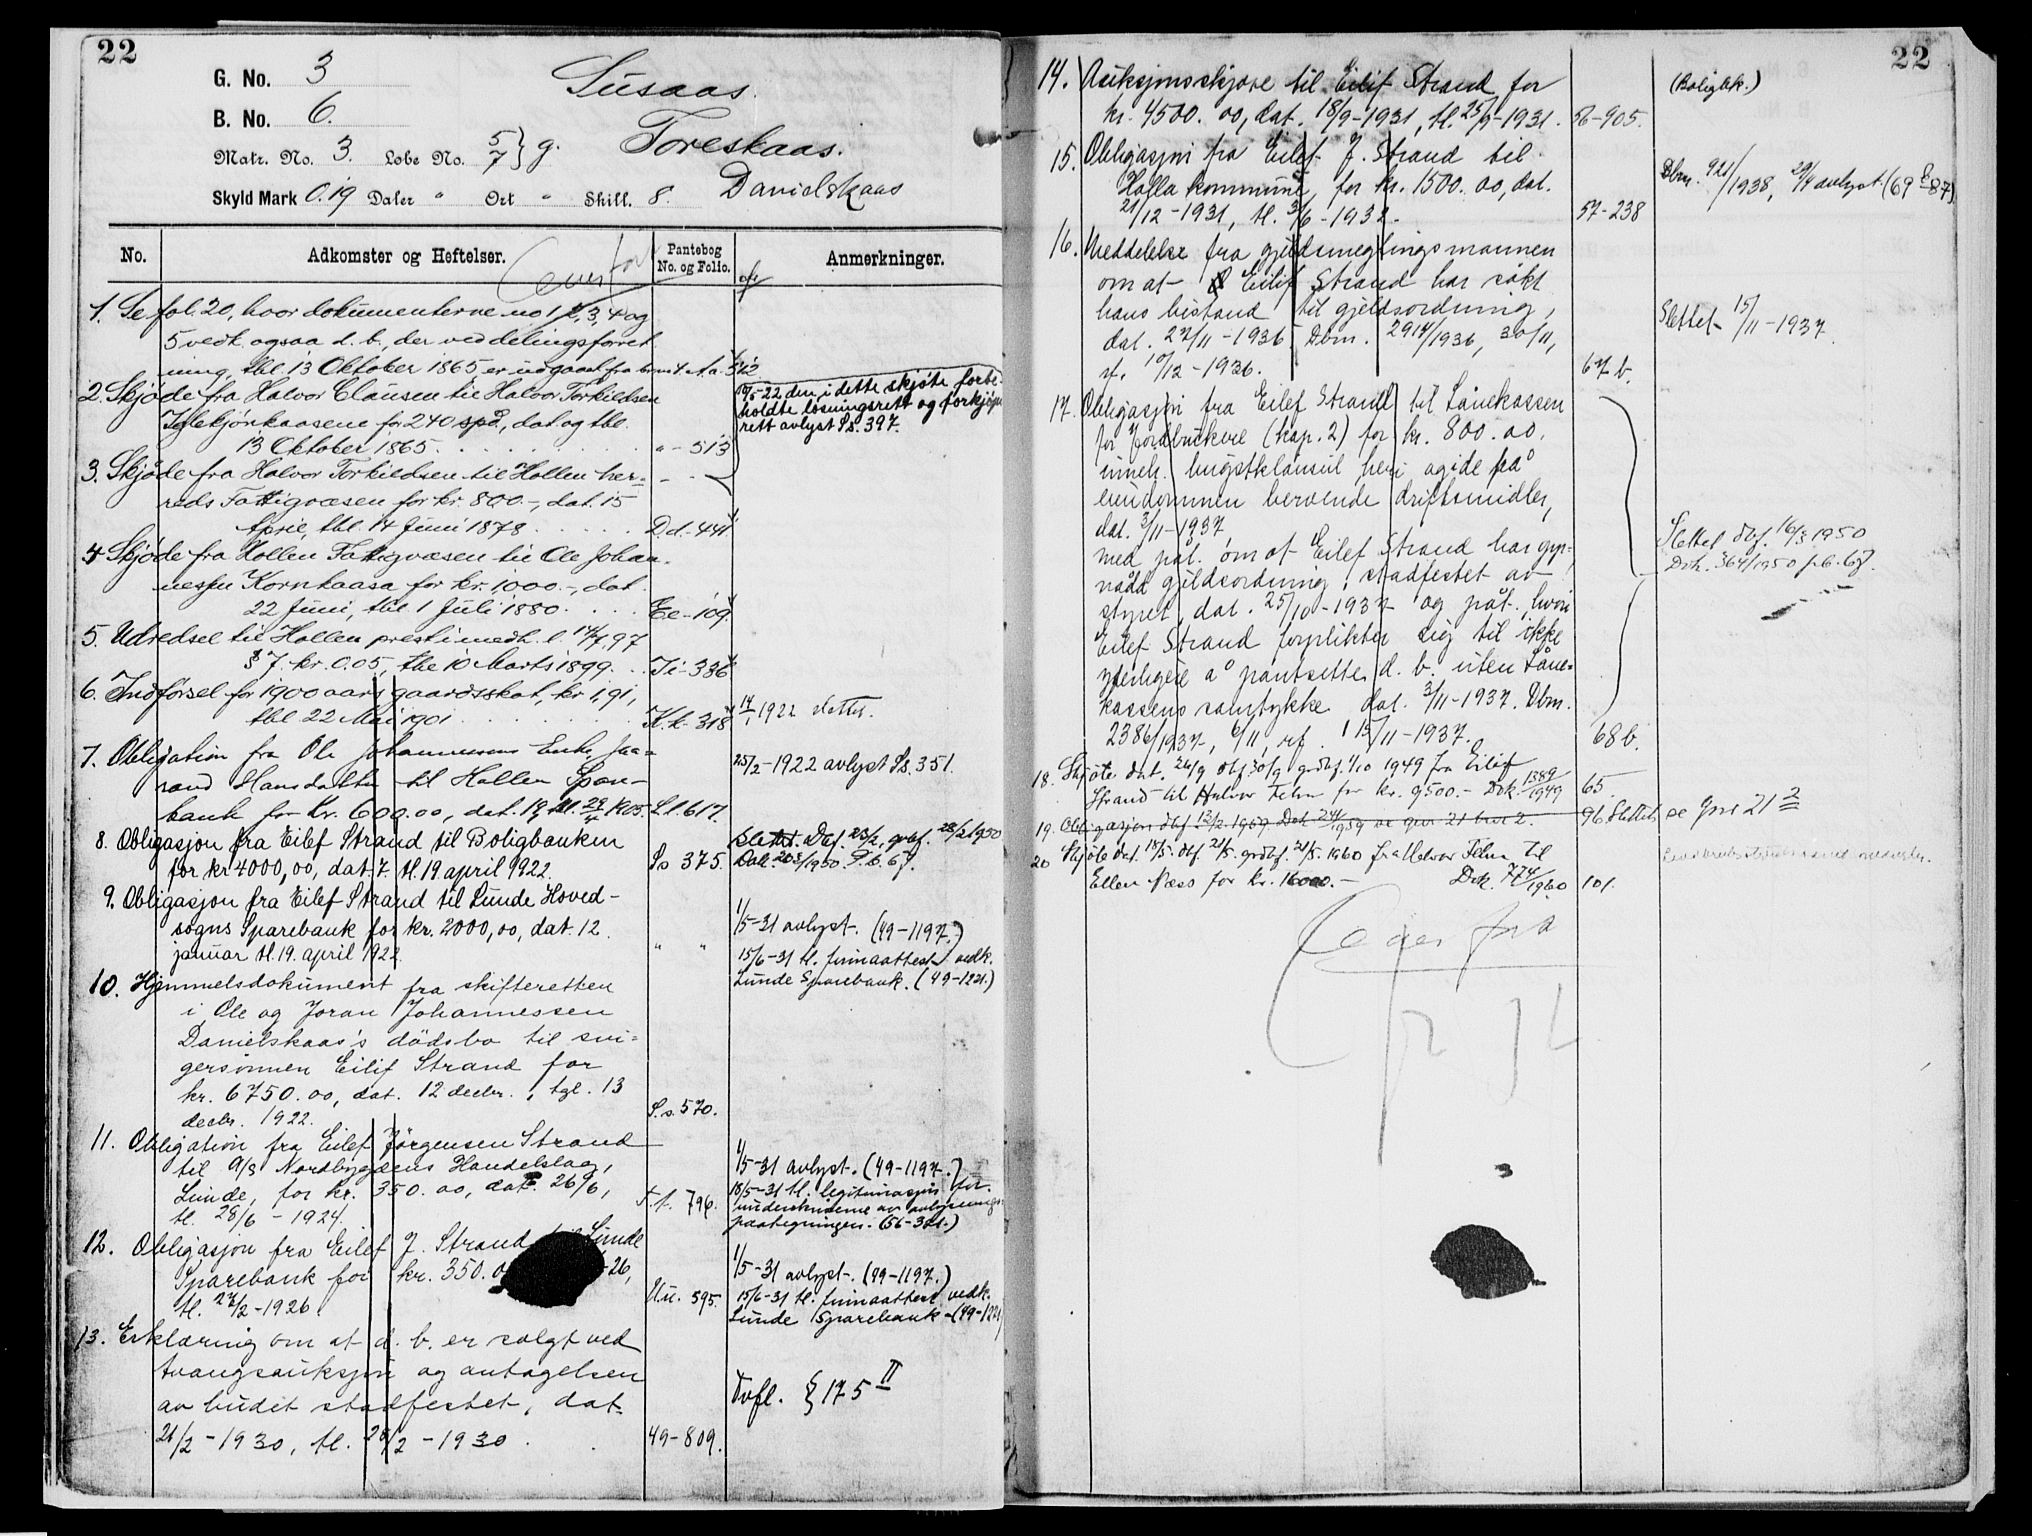 22
G. No. 3
Susaas.
B. No. 6.
Toreskaas.
Matr. No. 3. Løbe No. 5/7 } g.
Danielskaas
Skyld Mark 0.19 Daler " Ort " Skill. 8.
No.
Adkomster og Heftelser.
Pantebog
No. og Folio.
Anmerkninger.
1. Se fol. 20, hvor dokumenterne no 1, 2, 3, 4 og
5 vedk. ogsaa d. b., der ved delingsforret
ning, tbl. 13 Oktober 1865 er udgaaet fra
2. Skjøde fra Halvor Clausen til Halvor Torkildsen
for 240 spd., dat. og tbl.
13 Oktober 1865. " - 513
den i dette skjøte forbe-
holdte løsningsrett og forkjøps
rett avlyst Ss. 397.
3. Skjøde fra Halvor Torkildsen til Hollen her-
reds Fattigvæsen for kr. 800.-, dat. 15
April, tbl. 14 Juni 1878. D.d. - 441
4 Skjøde fra Hollen Fattigvæsen til Ole Johan-
nessen Kornkaasa for kr. 1000.-, dat.
22 Juni, tbl. 1 Juli 1880. E e - 109
5. Udredsel til Hollen prest i medh. l. 14/7. 97
§ 7. kr. 0.05, tbl. 10 Marts 1899. I i - 336
6. Indførsel for 1900 aars gaardsskat, kr. 1,91,
tbl. 22 Mai 1901. K. k. 318
14/1 1922 slettet.
7. Obligation fra Ole Johannessens Enke,
Hansdatter til Hollen Spare-
bank for Kr. 600.00, dat. 19, tbl. 29/4 1905. L l. 617.
25/2 - 1922 avlyst Ss. 351.
8. Obligasjon fra Eilef Strand til Boligbanken
for kr 4000,00, dat. 7. tl. 19. april 1922. Ss 375.
Slettet. Dbf. 23/2, grbf. 28/2 1950
Dok. 203/1950 P.b. 67.
9. Obligasjon fra Eilef Strand til Lunde Hoved-
sogns Sparebank for kr. 2000,00, dat. 12
januar tl. 19. april 1922. " "
1/5-31 avlyst. (49-1197.)
15/6-31 tl. firmaattest vedk.
Lunde Sparebank. (49-1221.)
10. Hjemmelsdokument fra skifteretten
i Ole og Joran Johannessen
Danielskaas's dødsbo til svi-
gersønnen Eilif Strand for
kr. 6750.00, dat. 12 decbr., tgl. 13
decbr. 1922. S.s. 570.
11. Obligation fra Eilef Jørgensen Strand
til A/S Nordbygdens Handelslag,
Lunde, for kr. 350.00, dat. 26/6,
tl. 28/6 - 1924. T.t. 796.
1/5-31 avlyst. (49-1197.)
18/5-31 tl. legitimasjon for
underskriverne av avlysnings-
paategningen.
12. Obligasjon fra Eilef J. Strand til Lunde
Sparebank for kr. 350.00 -26,
tl. 27/2 - 1926. U.u. 595.
1/5-31 avlyst. (49-1197.)
15/6-31 tl. firmaattest vedk.
Lunde Sparebank - (49-1221)
13. Erklæring om at d. b. er solgt ved
tvangsauksjon og antagelsen
av budet stadfestet, dat.
21/2 - 1930, tl. 28/2 - 1930. 49-809.
Tvfl. § 175 II
22
14. Auksjonsskjøte til Eilif Strand for
kr. 4500.00, dat. 18/9-1931, tl. 25/9-1931. 56-905.
(Boligbk.)
15. Obligasjon fra Eilef J. Strand til
Holla kommune, for kr. 1500.00, dat.
21/12-1931, tl. 3/6-1932. 57-238
Dbm. 921/1938, 29/4 avlyst. (69 B 87)
16. Meddelelse fra gjeldsmeglingsmannen
om at Eilif Strand har søkt
hans bistand til gjeldsordning,
dat. 27/11-1936. Dbm. 2914/1936, 30/11,
rf. 10/12-1936. 67 b.
Slettet 15/11-1937.
17. Obligasjon fra Eilef Strand til Lånekassen
for Jordbrukere (kap. 2) for kr. 800.00.
eiendommen berøende driftsmidler,
dat. 3/11-1937
med påt. om at Eilef Strand har opp-
nådd gjeldsordning, stadfestet av
styret, dat. 25/10-1937 og påt., hvori
Eilef Strand forplikter sig til ikke
ytterligere å pantsette d. b. uten Låne-
kassens samtykke dat. 3/11-1937. Dbm.
2386/1937, 6/11, rf. 15/11-1937. 68 b.
Slettet dbf. 16/3 1950
Dok. 364/1950 p.b. 67.
18. Skjøte dat. 24/9 dbf. 30/9 grdbf. 1/10 1949 fra Eilif
Strand til Halvor Felm for kr. 9500.- Dok. 1389/1949 65.
19. Obligasjon dbf 12/2 1959 Dok 241/1959 se gnr 21 bnr 2. 96 Slettet, se gnr 21 2
20 Skjøte dat. 18/5. dbf. 21/5. grdbf. 21/5. 1960 fra Halvor Felm til
Ellen Næss for kr. 16000.- Dok. 774/1960 101.